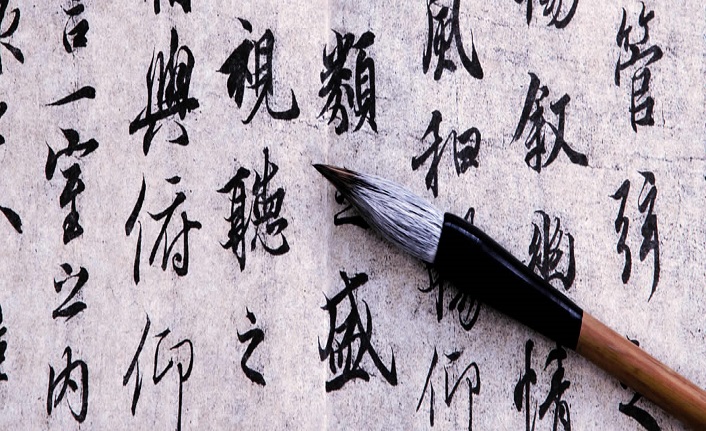 管弦之
暢叙幽情
風和暢仰
類之盛
視聽之
與俯仰
言一室之內